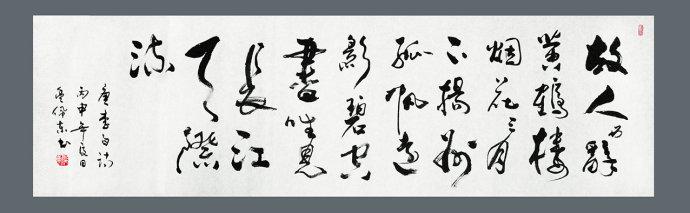 故人西辭
黄鶴楼
烟花三月
下揚州
孤帆遠
影碧空
盡唯見
長江
天際
流
唐李白詩
丙申年夏日